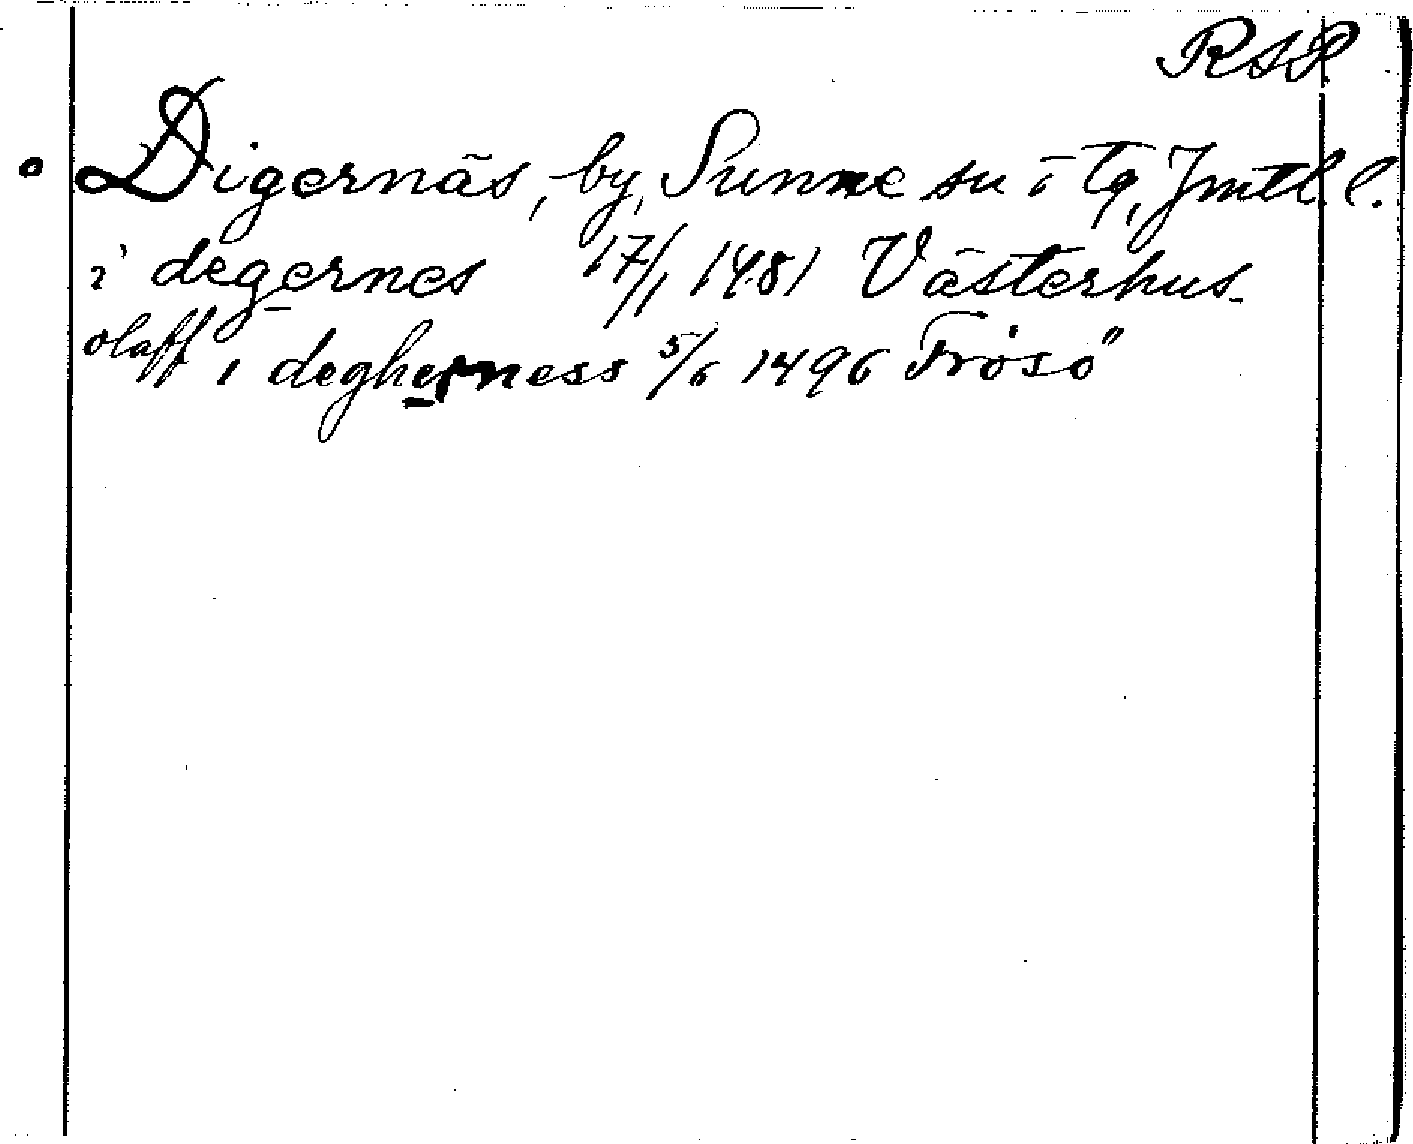 RSR
Digernäs, by, Sunne sn o Tg, Jmtl. l.
i degernes 17/1 1481 Västerhus
olaff i degherness 5/6 1496 Frösö